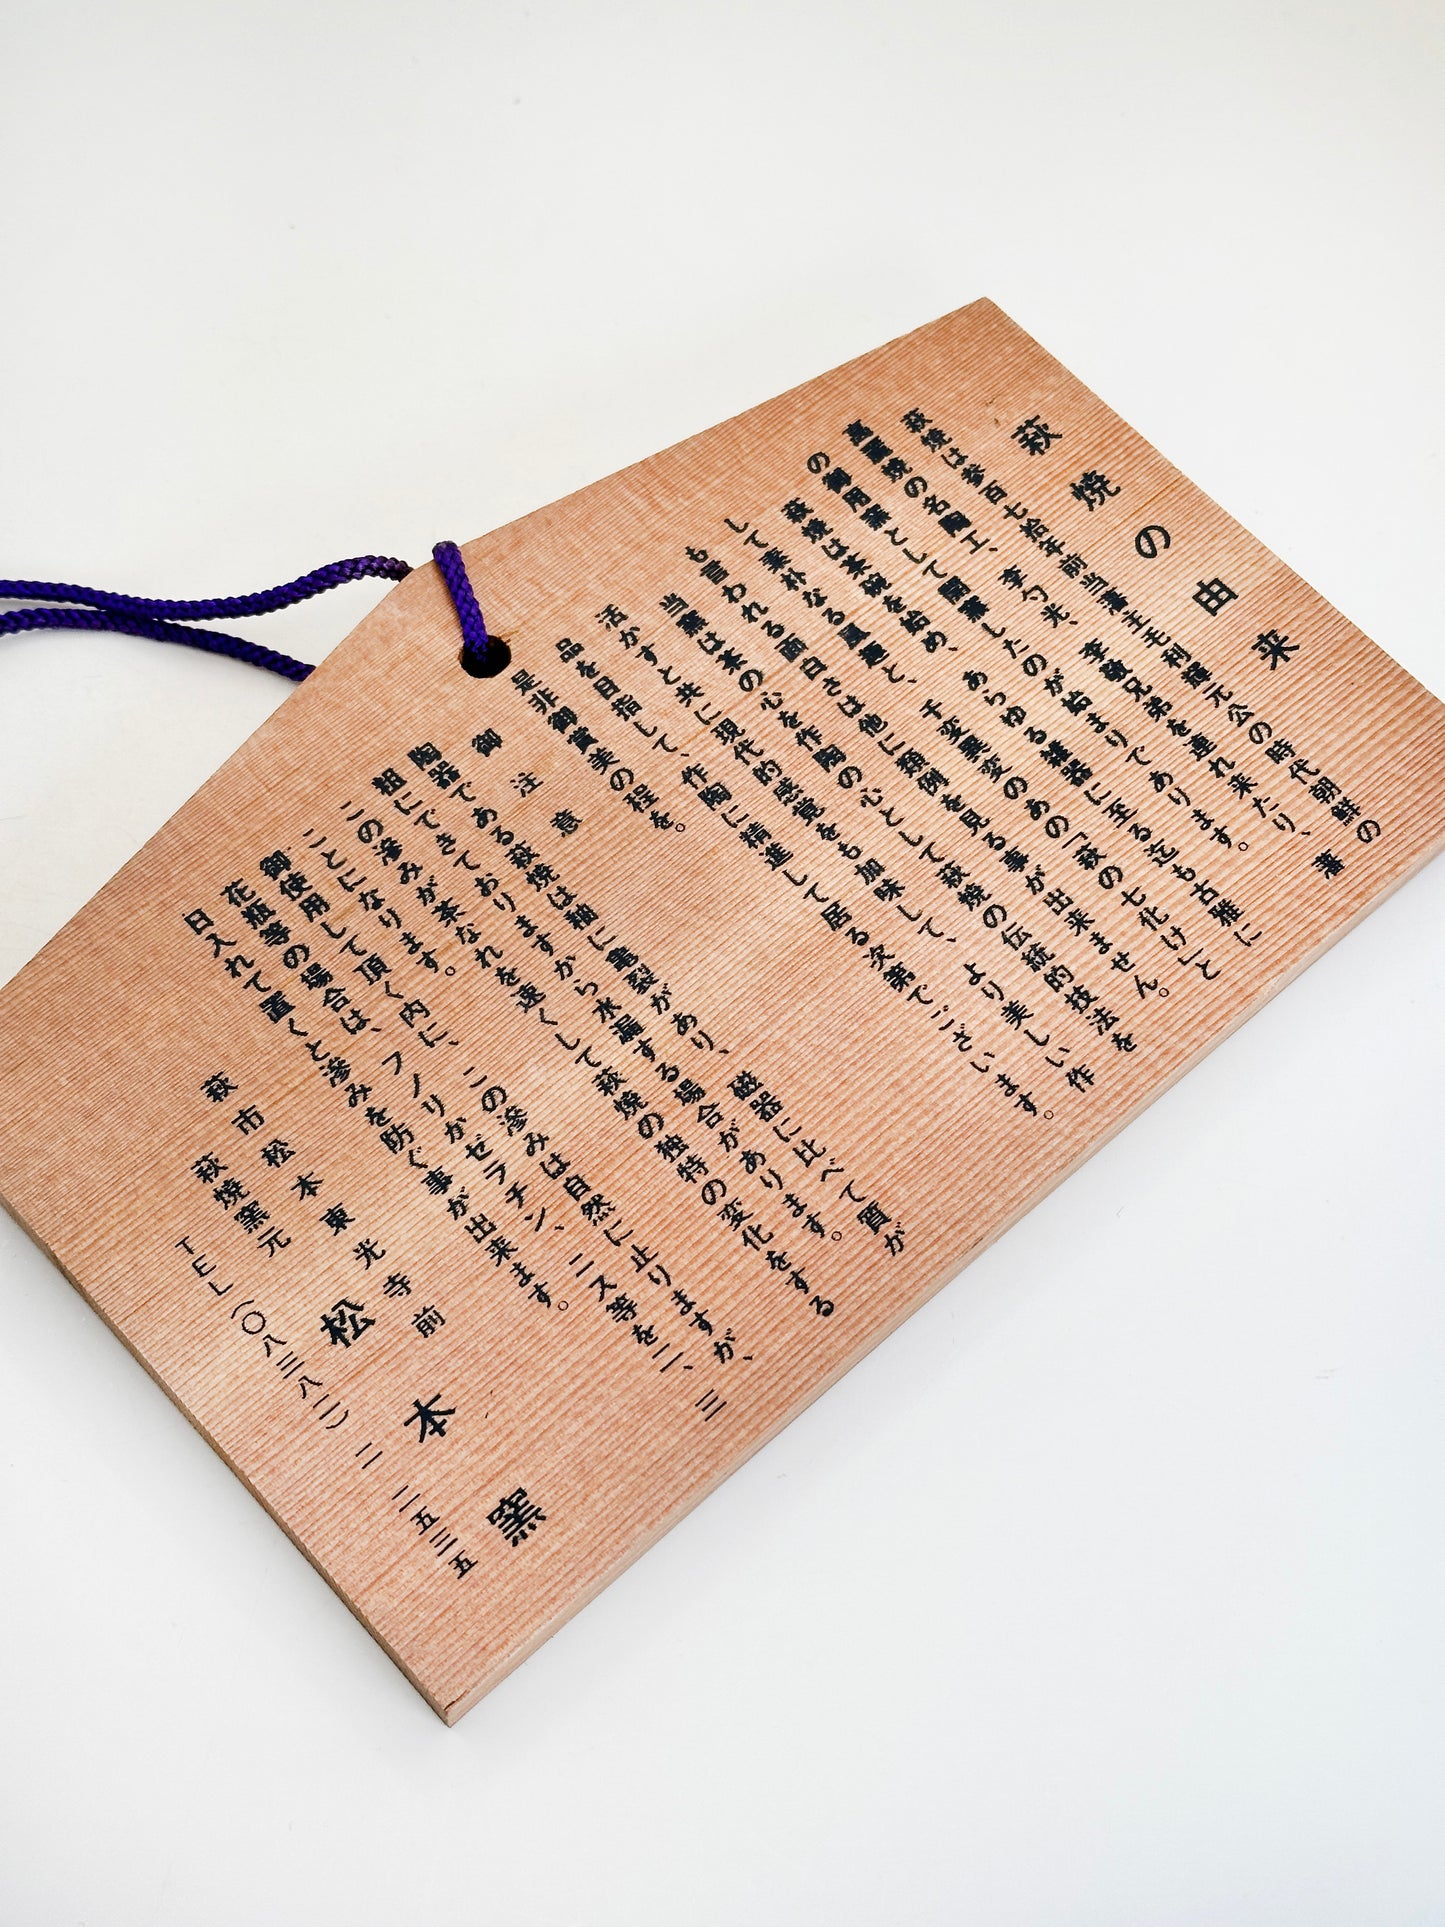 萩焼の由来
萩焼は参百七拾年前当藩主毛利輝元公の時代朝鮮の
高麗焼の名陶工、李勺光、李敬兄弟を連れ来たり、藩
の御用窯として開窯したのが始まりであります。
萩焼は茶碗を始め、あらゆる雑器に至る迄も古雅に
して素朴なる風趣と、千変異変のあの「萩の七化け」と
も言われる面白さは他に類例を見る事が出来ません。
当窯は茶の心を作陶の心として萩焼の伝統的技法を
活かすと共に現代的感覚をも加味して、より美しい作
品を目指して、作陶に精進して居る次第でございます。
是非御賞美の程を。
御注意
陶器である萩焼は釉に亀裂があり、磁器に比べて質が
粗にできておりますから水漏する場合があります。
この滲みが茶なれを速くして萩焼の独特の変化をする
ことになります。この滲みは自然に止りますが、
御使用して頂く内に、フノリかゼラチン、ニス等を二、三
花瓶等の場合は、
日入れて置くと滲みを防ぐ事が出来ます。
萩市松本東光寺前
萩焼窯元 松本窯
TEL(〇八三八二)二―二五三五